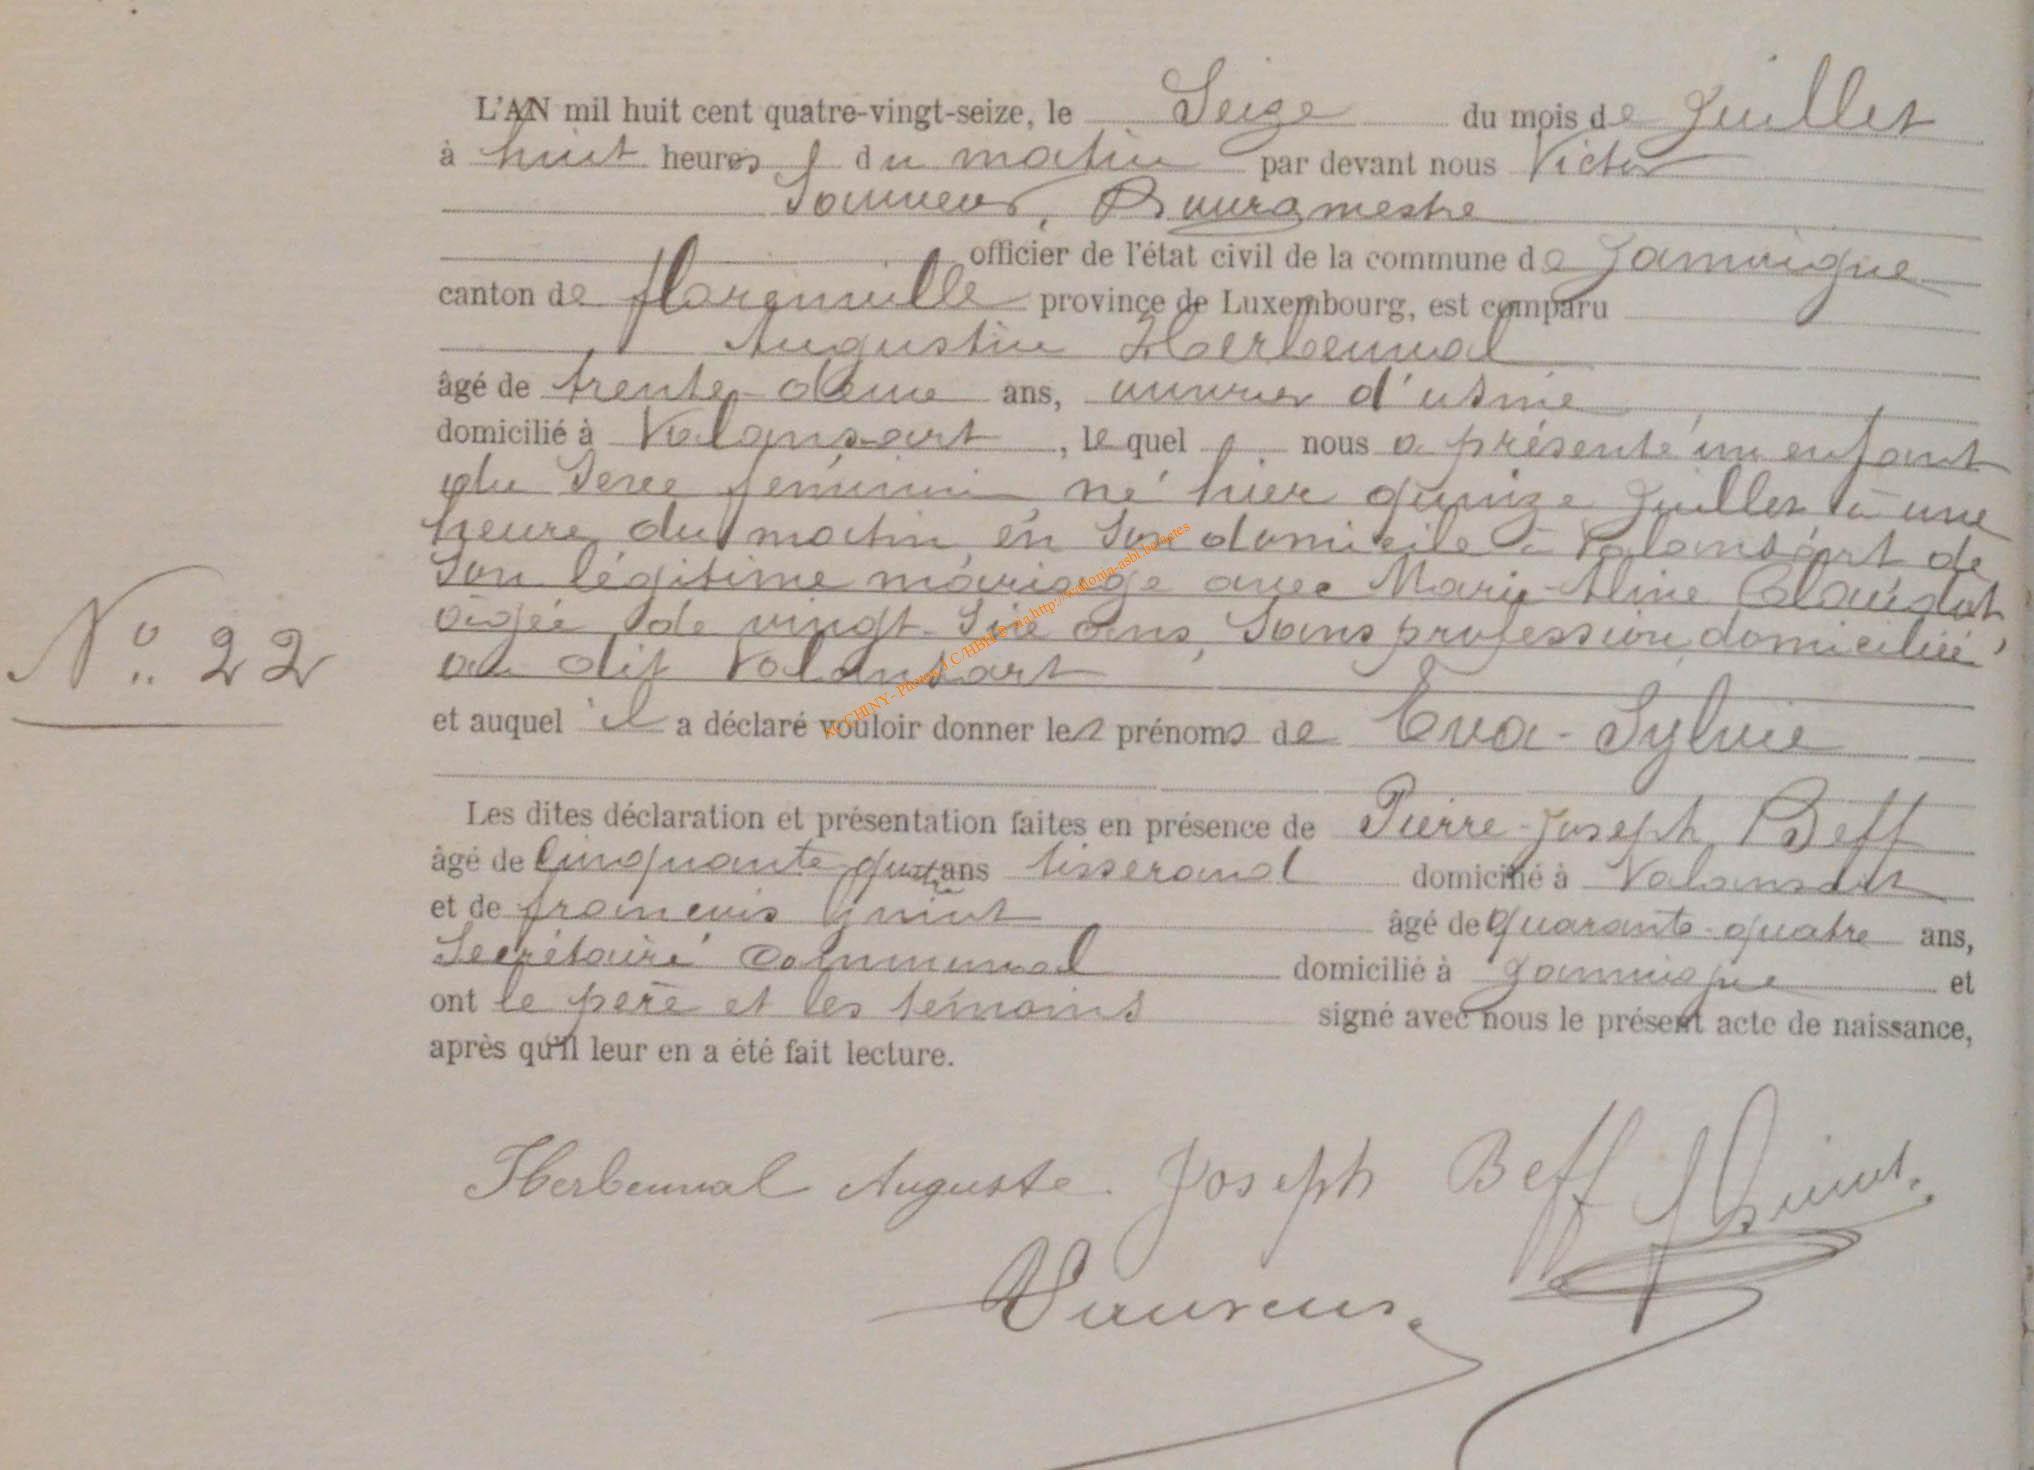 L'AN mil huit cent quatre-vingt-seize, le Seize du mois de Juillet
à huit heures du matin par devant nous Victor
Bourgmestre
officier de l'état civil de la commune de Jamoigne
canton de florenville province de Luxembourg, est comparu
Augustin Herbeuval
âgé de trente-deux ans, ouvrier d'usine
domicilié à Valansart, lequel nous a présenté un enfant
du Sexe féminin né hier quinze Juillet à une
heure du matin en Son domicile à Valansart de
Son légitime mariage avec Marie-Aline
âgée de vingt-Six ans, Sans profession, domiciliée
au dit Valansart
N° 22
et auquel il a déclaré vouloir donner les prénoms de Eva-Sylvie
Les dites déclaration et présentation faites en présence de Pierre-Joseph Beff
âgé de Cinquante quatre ans tisserand domicilié à Valansart
et de francois Guiot âgé de quarante-quatre ans,
Secrétaire Communal domicilié à Jamoigne et
ont le père et les témoins signé avec nous le présent acte de naissance,
après qu'il leur en a été fait lecture.
Herbeuval Auguste. Joseph Beff